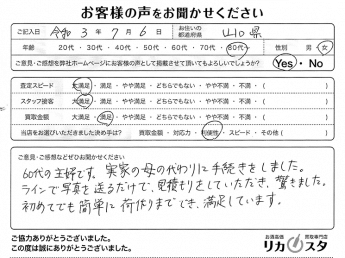 お客様の声をお聞かせください
ご記入日 令和 3年 7月 6日 お住いの都道府県 山口県
年齢 20代・30代・40代・50代・60代・70代・80代 性別 男・女
ご意見・ご感想を弊社ホームページにお客様の声として掲載させて頂いてもよろしいでしょうか? Yes・No
査定スピード 大満足・満足・やや満足・どちらでもない・やや不満・不満・( )
スタッフ接客 大満足・満足・やや満足・どちらでもない・やや不満・不満・( )
買取金額 大満足・満足・やや満足・どちらでもない・やや不満・不満・( )
当店をお選びいただきました決め手は? 買取金額・対応力・利便性・スピード・その他( )
ご意見・ご感想などぜひお聞かせください
60代の主婦です。実家の母の代わりに手続きをしました。
ラインで写真を送るだけで、見積もりをしていただき、驚きました。
初めてでも簡単に荷作りまででき、満足しています。
ご協力ありがとうございました。
この度は誠にありがとうございました。
お酒高価買取専門店
リカスタ